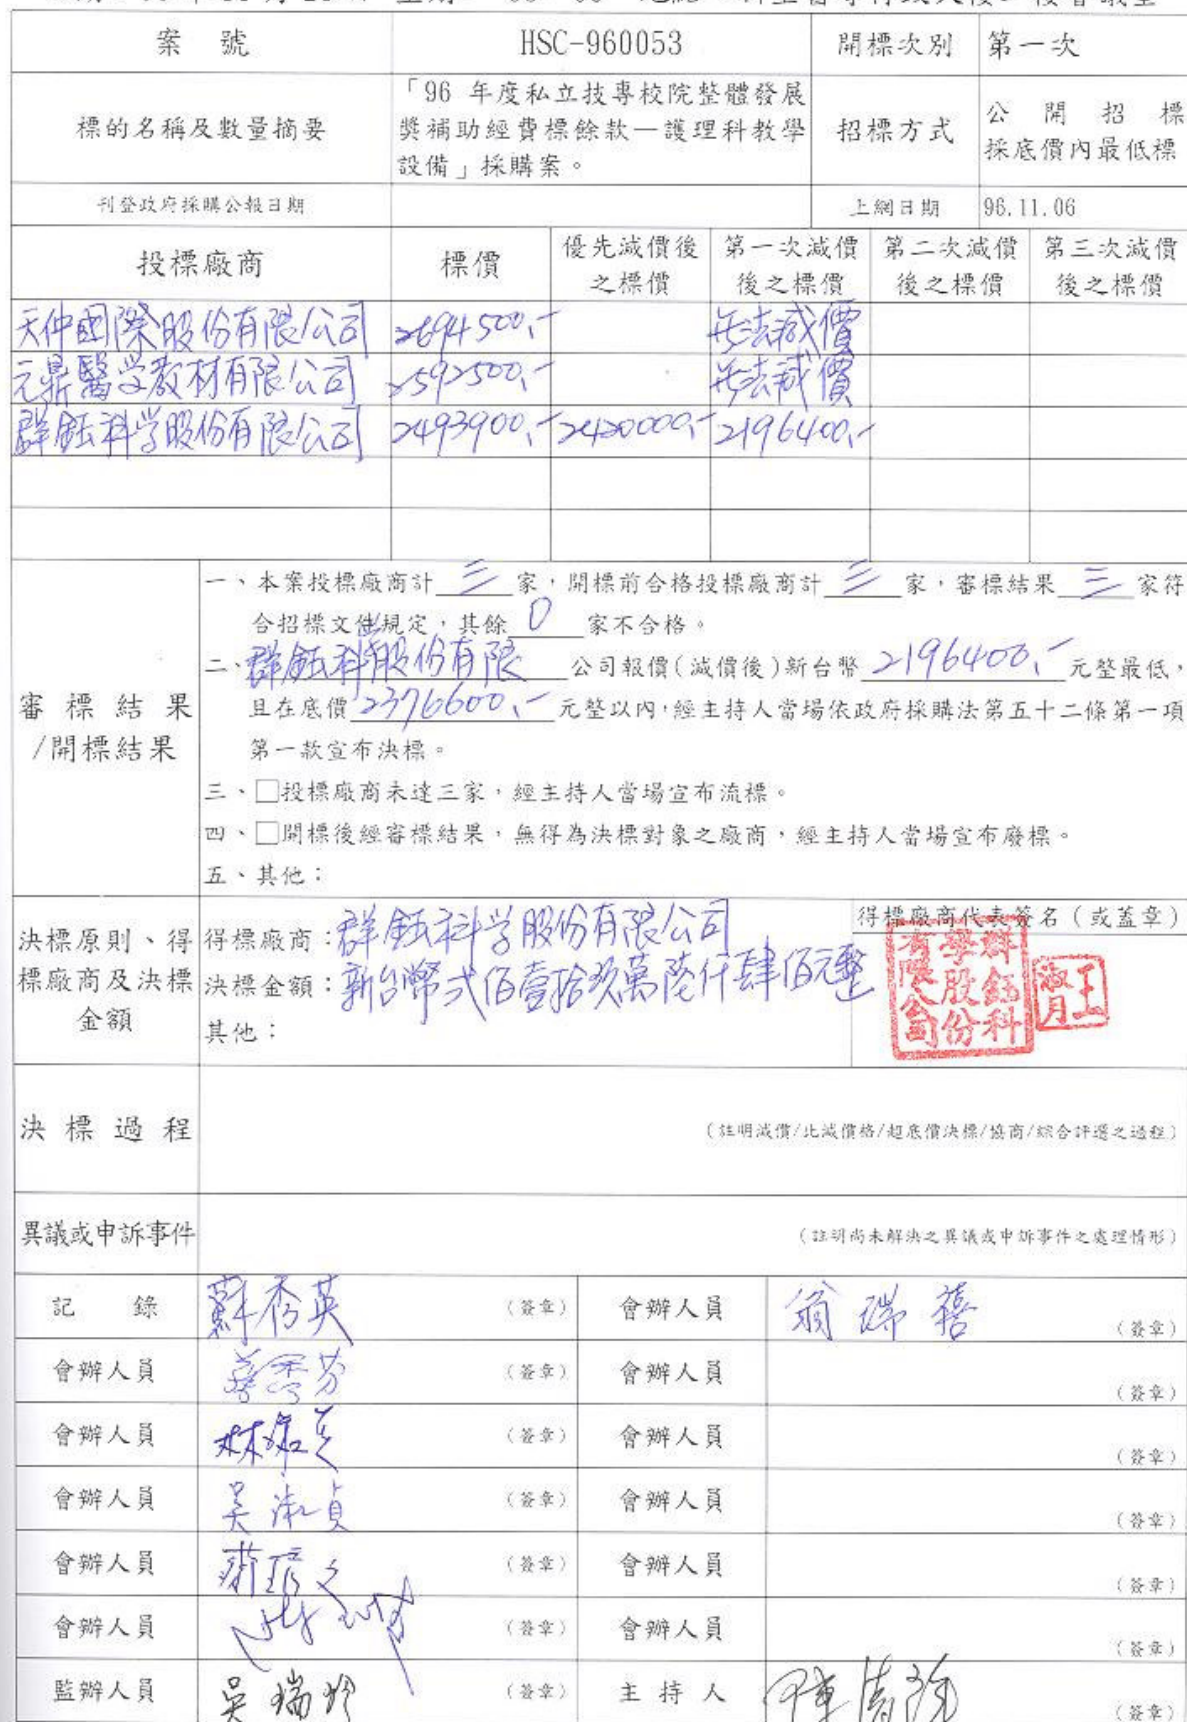 案 號 HSC-960053 開標次別 第一次
標的名稱及數量摘要 「96 年度私立技專校院整體發展
獎補助經費標餘款—護理科教學
設備」採購案。
招標方式 公開招標
採底價內最低標
刊登政府採購公報日期 上網日期 96.11.06
投標廠商 標價 優先減價後之標價 第一次減價後之標價 第二次減價後之標價 第三次減價後之標價
天仲國際股份有限公司 2694500.- 無法減價
元鼎醫学教材有限公司 2592500.- 無法減價
群鈺科学股份有限公司 2493900.- 2420000.- 2196400.-
審標結果
/開標結果
一、本案投標廠商計 三 家,開標前合格投標廠商計 三 家,審標結果 三 家符
合招標文件規定,其餘 0 家不合格。
二、群鈺科学股份有限 公司報價(減價後)新台幣 2196400.- 元整最低,
且在底價 2376600.- 元整以內,經主持人當場依政府採購法第五十二條第一項
第一款宣布決標。
三、□投標廠商未達三家,經主持人當場宣布流標。
四、□開標後經審標結果,無得為決標對象之廠商,經主持人當場宣布廢標。
五、其他:
決標原則、得
標廠商及決標
金額
得標廠商:群鈺科学股份有限公司
決標金額:新台幣弍佰壹拾玖萬陸仟肆佰元整
其他:
得標廠商代表簽名(或蓋章)
群鈺科學股份有限公司
王淑月
決標過程 (註明減價/比減價格/超底價決標/協商/綜合評選之過程)
異議或申訴事件 (註明尚未解決之異議或申訴事件之處理情形)
記 錄 蘇秀英 (簽章) 會辦人員 翁瑞禧 (簽章)
會辦人員 (簽章) 會辦人員 (簽章)
會辦人員 (簽章) 會辦人員 (簽章)
會辦人員 吳淑貞 (簽章) 會辦人員 (簽章)
會辦人員 (簽章) 會辦人員 (簽章)
會辦人員 (簽章) 會辦人員 (簽章)
監辦人員 吳瑞玲 (簽章) 主持人 (簽章)